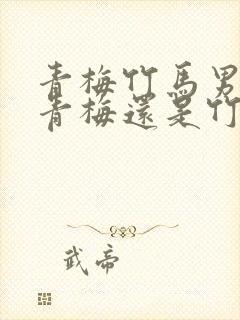 青梅竹馬男
青梅還是竹
武帝